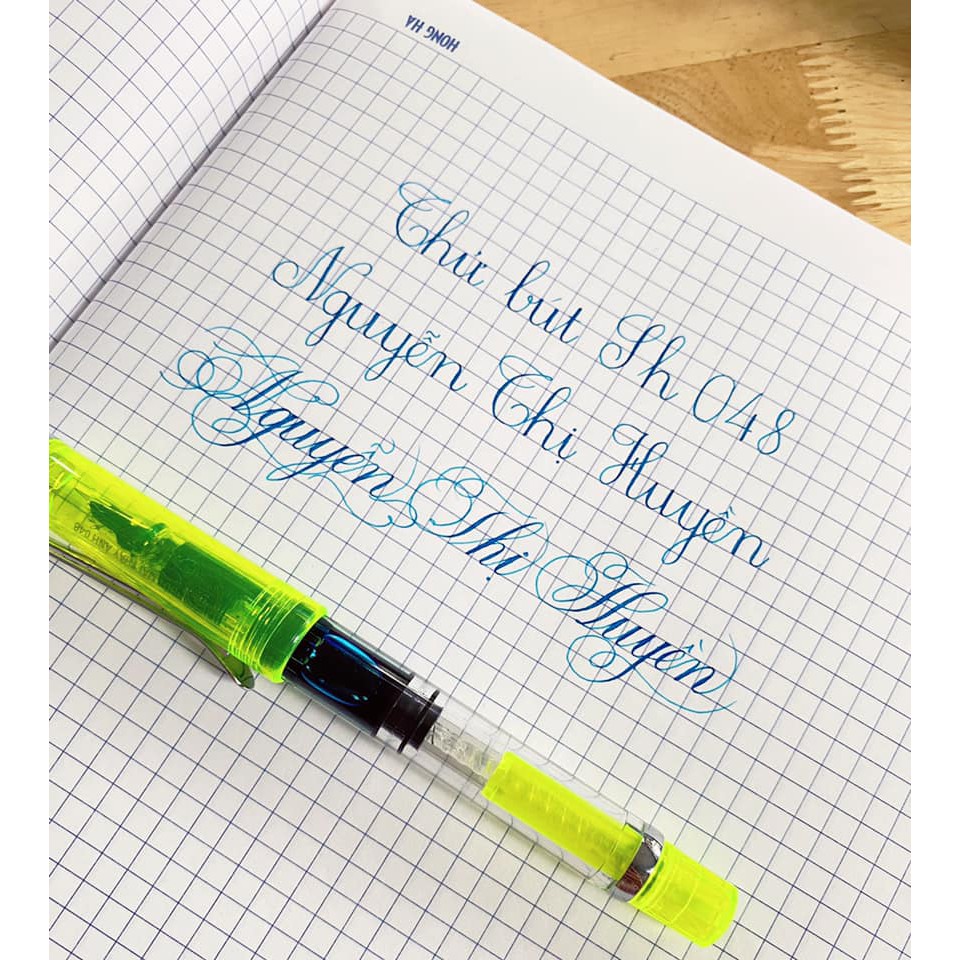 HONG HA
Thử bút Sh 048
Nguyễn Thị Huyền
Nguyễn Thị Huyền
ÁNH 048